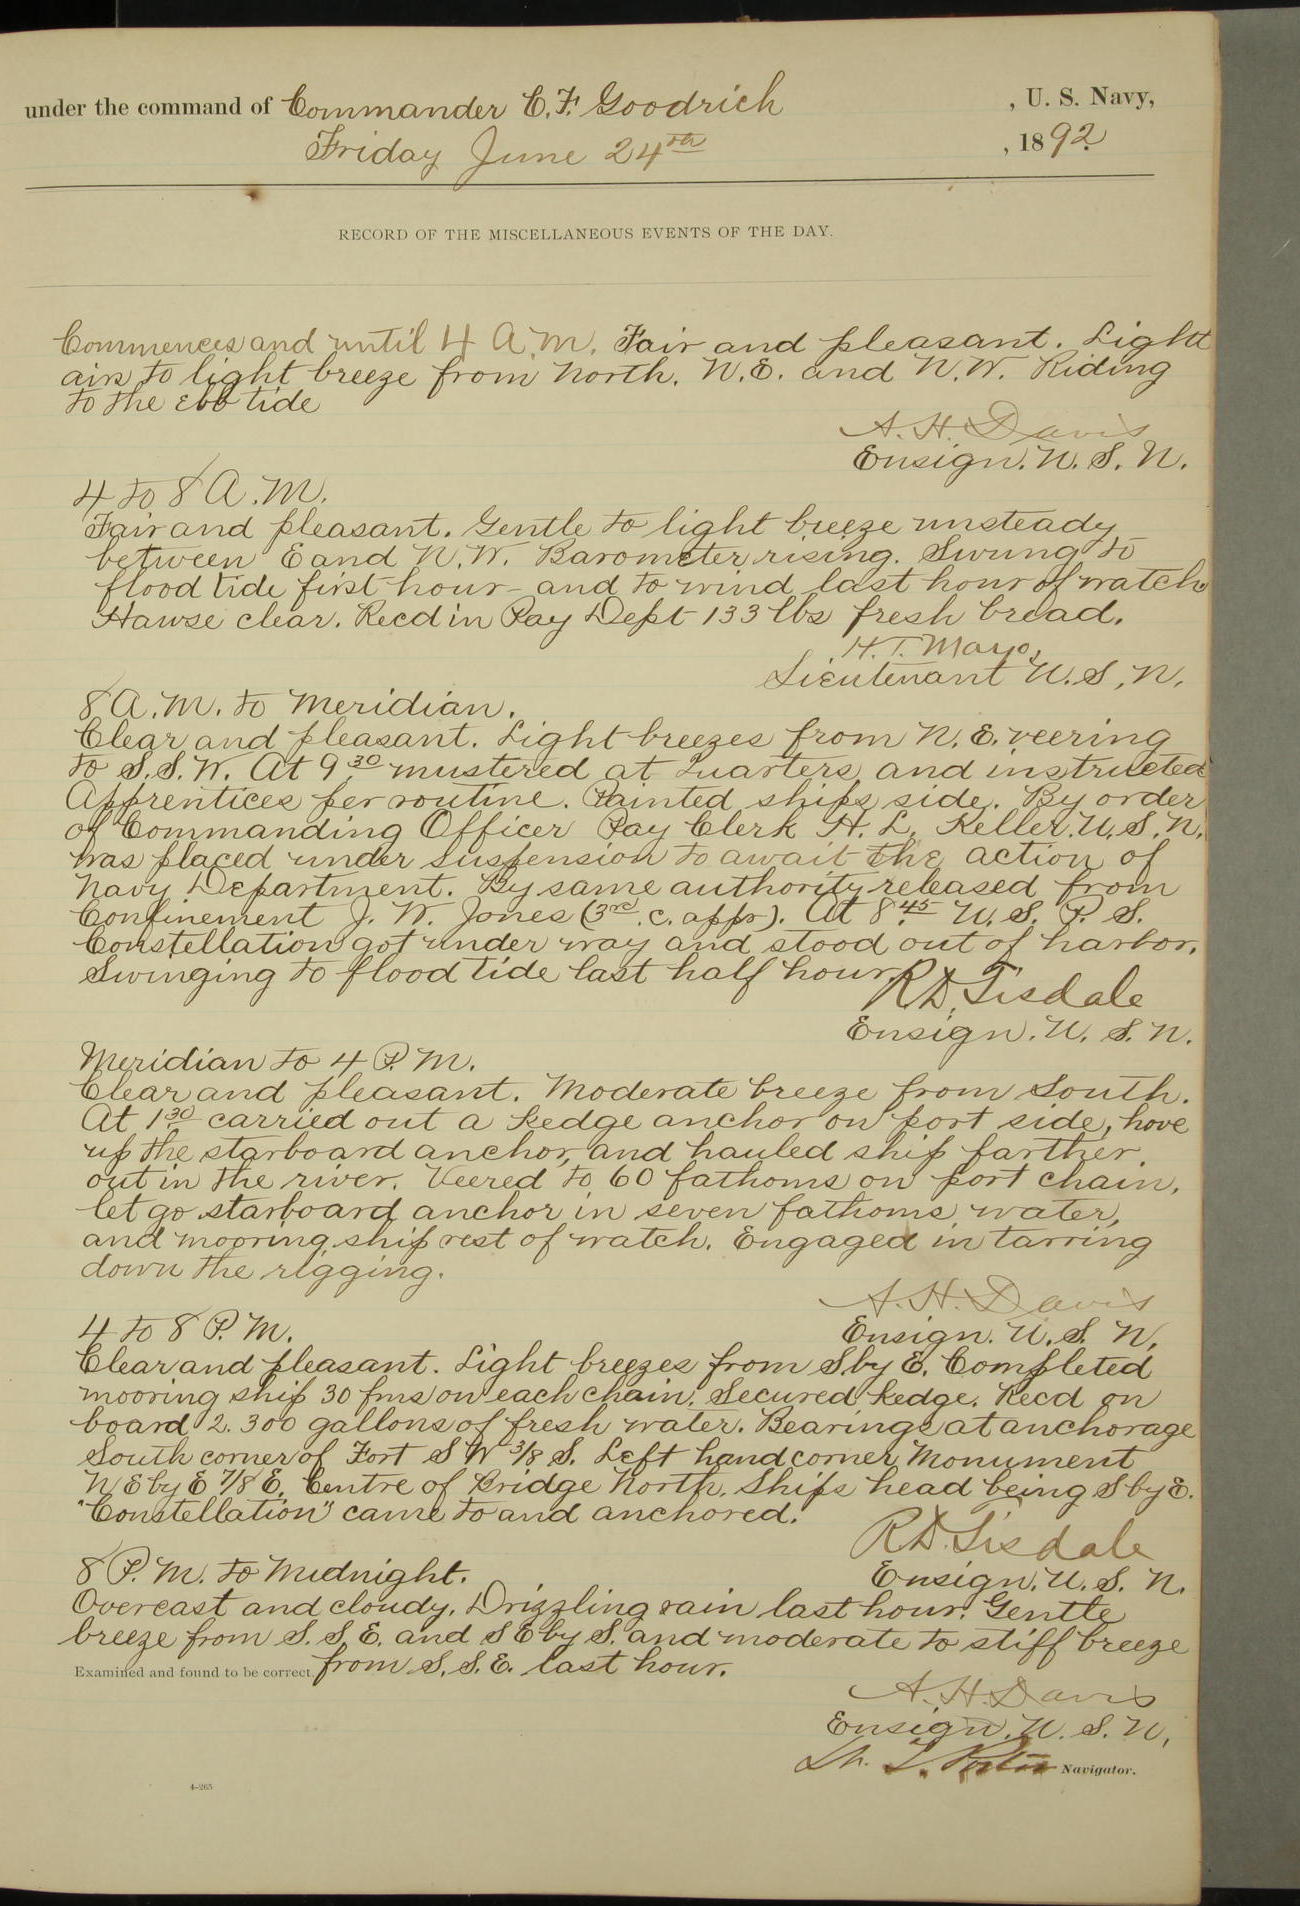 under the command of Commander C. F. Goodrich , U. S. Navy,
Friday June 24th , 1892
RECORD OF THE MISCELLANEOUS EVENTS OF THE DAY.
Commences and until 4 A.M. Fair and pleasant. Light
airs to light breeze from North. N.E. and N.W. Riding
to the ebb tide
A. H. Davis
Ensign. U. S. N.
4 to 8 A.M.
Fair and pleasant. Gentle to light breeze unsteady
between E and N.W. Barometer rising. Swung to
flood tide first hour - and to wind last hour of watch
Hawse clear. Recd in Pay Dept 133 lbs fresh bread.
H. T. Mayo,
Lieutenant U. S. N.
8 A.M. to Meridian.
Clear and pleasant. Light breezes from N.E. veering
to S.S.W. At 9.30 mustered at Quarters and instructed
Apprentices per routine. Painted ships side. By order
of Commanding Officer Pay Clerk H. L. Keller. U.S.N.
was placed under suspension to await the action of
Navy Department. By same authority released from
Confinement J. W. Jones (3rd. c. appr). At 8.45 U. S. P. S.
Constellation got under way and stood out of harbor.
Swinging to flood tide last half hour.
R D. Tisdale
Ensign. U. S. N.
Meridian to 4 P.M.
Clear and pleasant. Moderate breeze from South.
At 1.30 carried out a kedge anchor on port side, hove
up the starboard anchor, and hauled ship farther
out in the river. Veered to 60 fathoms on port chain,
let go starboard anchor in seven fathoms water,
and mooring ship rest of watch. Engaged in tarring
down the rigging.
A. H. Davis
Ensign. U. S. N.
4 to 8 P.M.
Clear and pleasant. Light breezes from S by E. Completed
mooring ship 30 fms on each chain. Secured kedge. Recd on
board 2.300 gallons of fresh water. Bearings at anchorage
South corner of Fort S W 3/8 S. Left hand corner Monument
N E by E 7/8 E. Centre of Bridge North. Ships head being S by E.
"Constellation" came to and anchored.
R D. Tisdale
Ensign. U. S. N.
8 P.M. to Midnight.
Overcast and cloudy. Drizzling rain last hour. Gentle
breeze from S. S E. and S E by S. and moderate to stiff breeze
from S. S. E. last hour.
Examined and found to be correct.
A. H. Davis
Ensign. U. S. N.
Navigator.
4-265